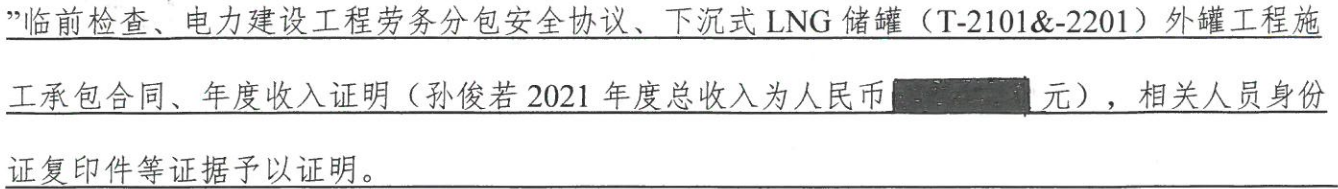 ”临前检查、电力建设工程劳务分包安全协议、下沉式 LNG 储罐（T-2101&-2201）外罐工程施
工承包合同、年度收入证明（孙俊若 2021 年度总收入为人民币 元），相关人员身份
证复印件等证据予以证明。